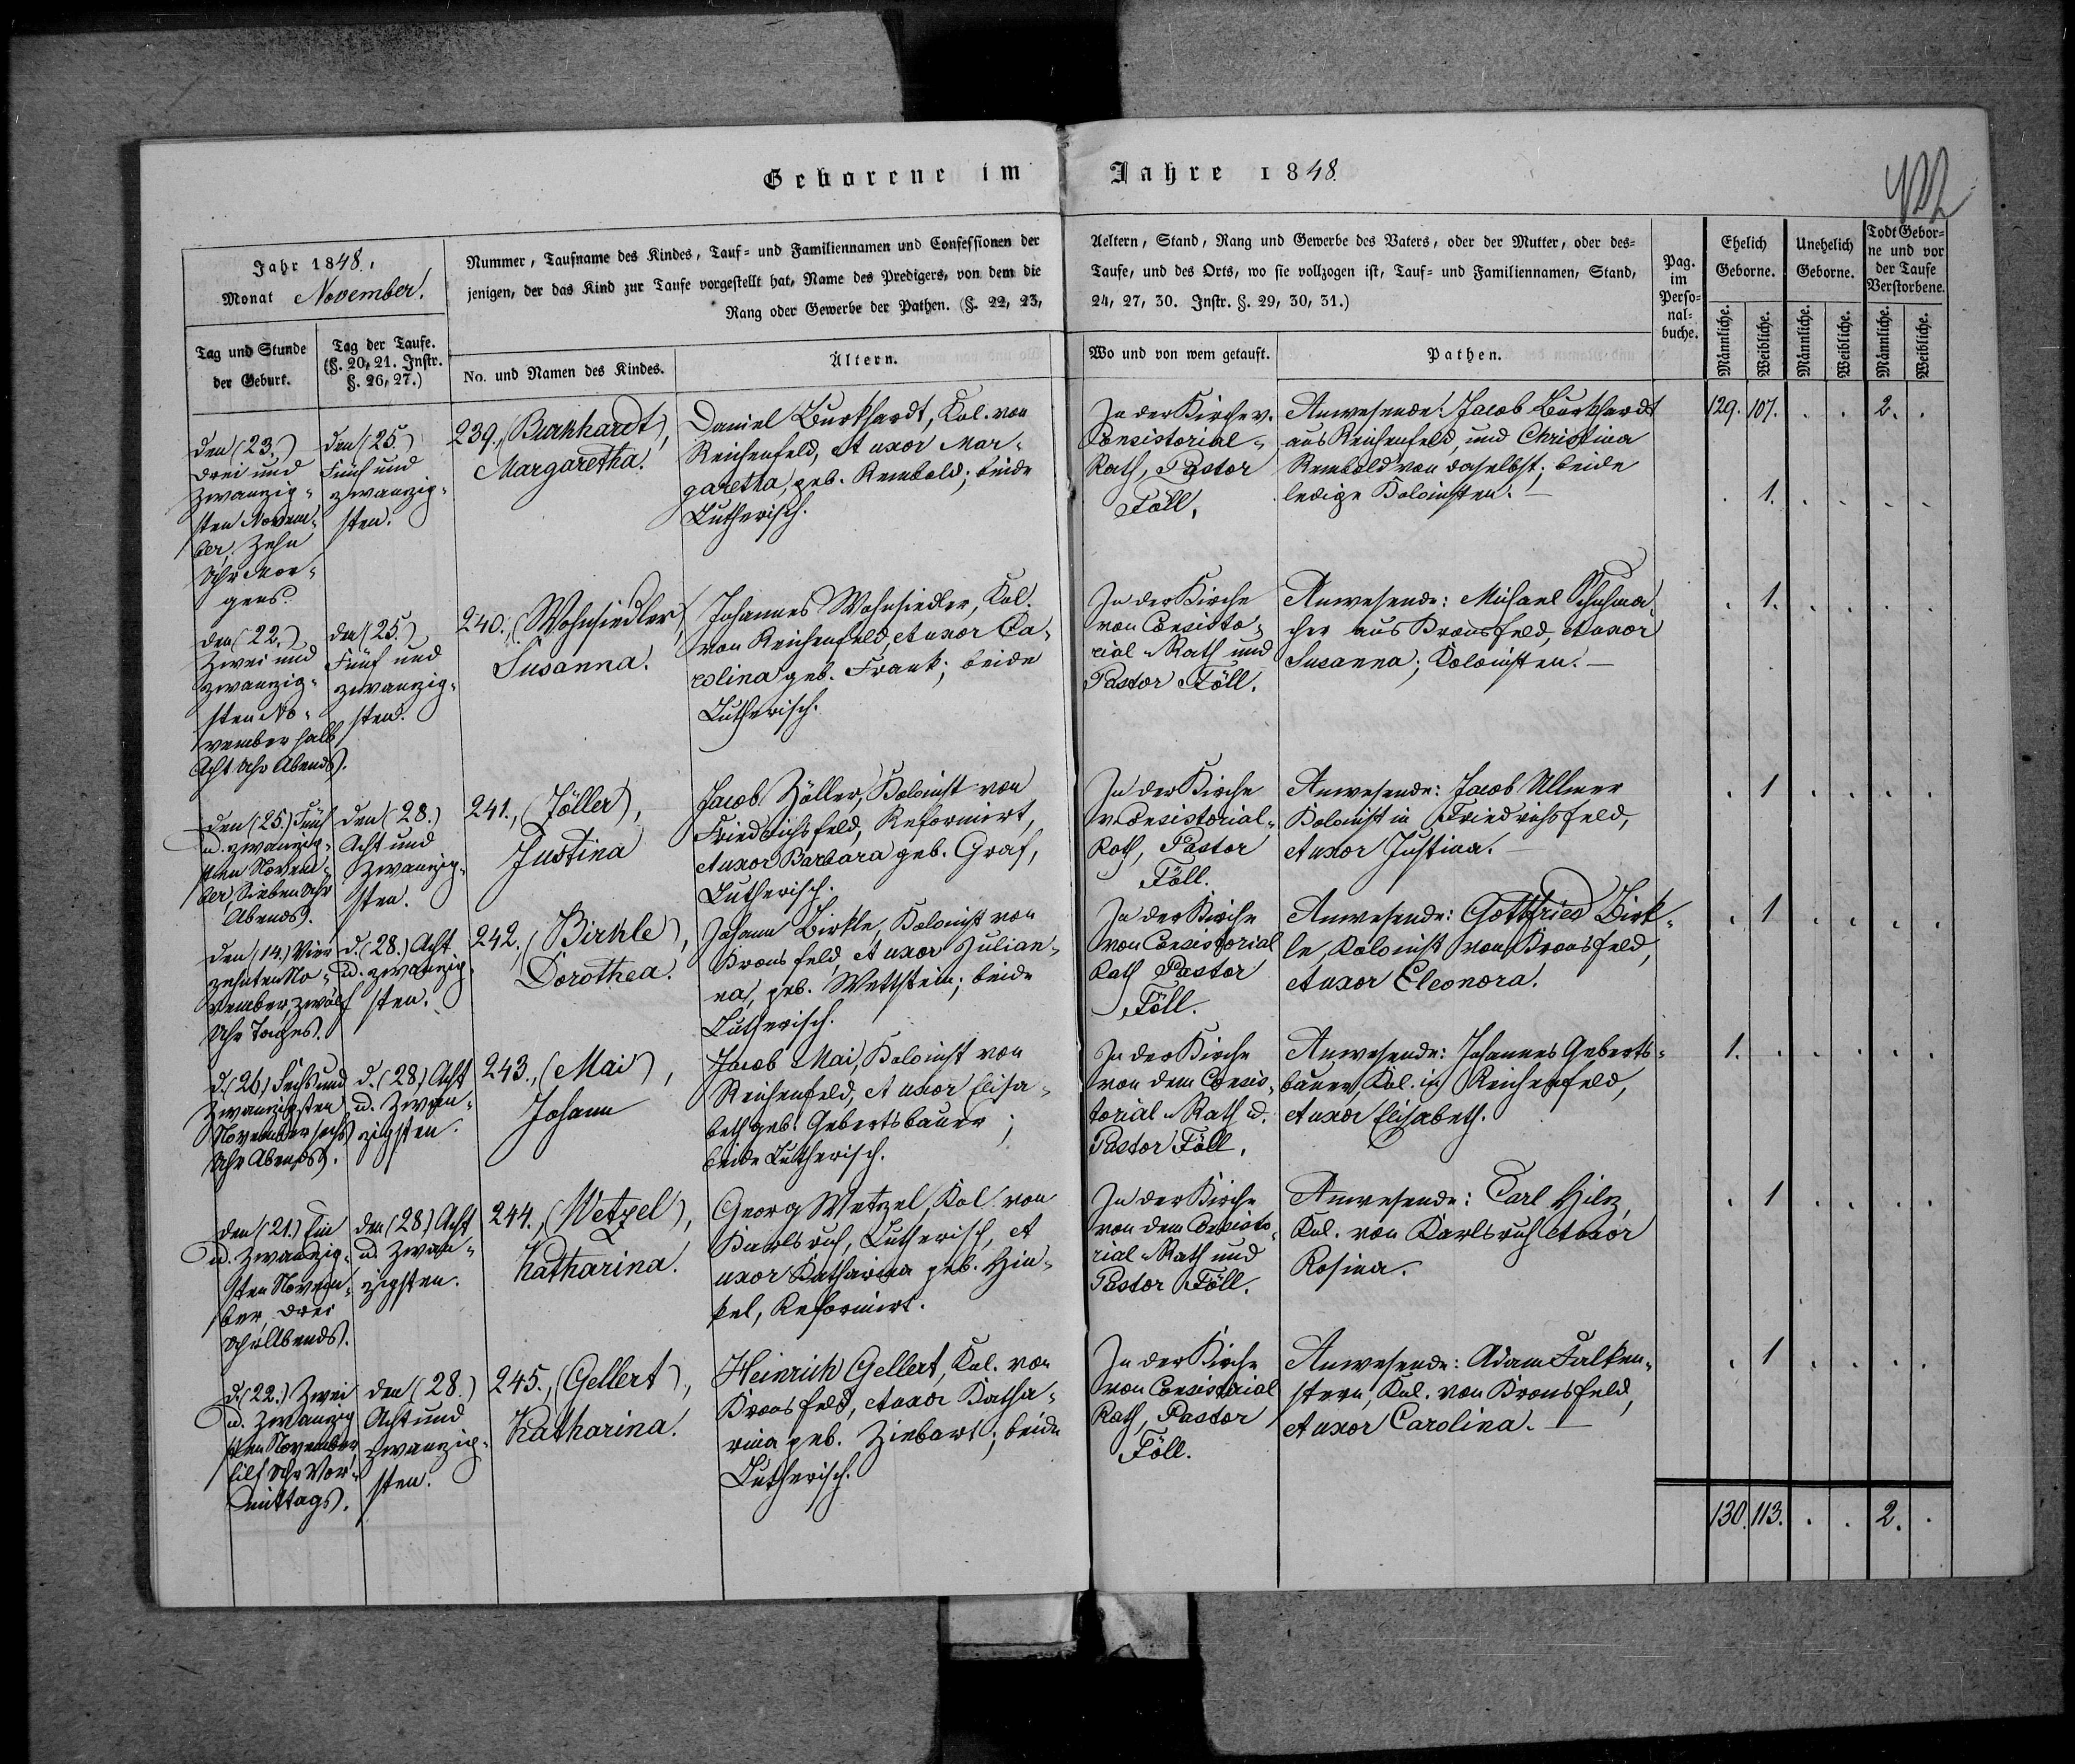 Geborene im Jahre 1848.
422
Jahr 1848.
Monat November.
Nummer, Taufname des Kindes, Tauf- und Familiennamen und Confessionen der
jenigen, der das Kind zur Taufe vorgestellt hat, Name des Predigers, von dem die
Rang oder Gewerbe der Pathen. (§. 22, 23,
Aeltern, Stand, Rang und Gewerbe des Vaters, oder der Mutter, oder des=
Taufe, und des Orts, wo sie vollzogen ist, Tauf- und Familiennamen, Stand,
24, 27, 30. Instr. §. 29, 30, 31.)
Pag.
im
Perso=
nal=
buche.
Ehelich
Geborne.
Unehelich
Geborne.
Todt Gebor=
ne und vor
der Taufe
Verstorbene.
Tag und Stunde
der Geburt.
Tag der Taufe.
(§. 20, 21. Instr.
§. 26, 27.)
No. und Namen des Kindes.
Ältern.
Wo und von wem getauft.
Pathen.
Männliche.
Weibliche.
Männliche.
Weibliche.
Männliche.
Weibliche.
129. 107. . . 2. .
den (23.)
drei und
zwanzig-
sten Novem-
ber, Zehn
Uhr Mor-
gens.
den (25)
Fünf und
zwanzig-
sten.
239., (Burkhardt),
Margaretha.
Daniel Burkhardt, Kol. von
Reichenfeld, et uxor Mar-
garetha, geb. Rembold; beide
Lutherisch.
In der Kirche v.
Consistorial-
Rath, Pastor
Föll.
Anwesende: Jacob Burkhardt
aus Reichenfeld, und Christina
Rembold von daselbst; beide
ledige Kolonisten. —
. 1. . . . .
den (22.)
Zwei und
zwanzig-
sten No-
vember halb
Acht Uhr Abends.
den (25.)
Fünf und
zwanzig-
sten.
240., (Wohnsiedler),
Susanna.
Johannes Wohnsiedler, Kol.
von Reichenfeld, et uxor Ca-
rolina geb. Frank; beide
Lutherisch.
In der Kirche
von Consisto-
rial-Rath und
Pastor Föll.
Anwesende: Michael Schuhma-
cher aus Kronsfeld, et uxor
Susanna; Kolonisten. —
. 1. . . . .
den (25.) Fünf
u. zwanzig-
sten Novem-
ber, Sieben Uhr
Abends.
den (28.)
Acht und
Zwanzig-
sten.
241., (Zöller),
Justina
Jacob Zöller, Kolonist von
Friedrichsfeld, Reformirt,
et uxor Barbara geb. Graf,
Lutherisch.
In der Kirche
v. Consistorial-
Rath, Pastor
Föll.
Anwesende: Jacob Ullmer
Kolonist in Friedrichsfeld,
et uxor Justina. —
. 1 . . . .
den (14.) Vier
zehnten No-
vember, zwölf
Uhr Tages.
d. (28.) Acht
u. zwanzig-
sten.
242., (Birkle),
Dorothea.
Johann Birkle, Kolonist von
Kronsfeld, et uxor Julian-
na, geb. Wettstein; beide
Lutherisch.
In der Kirche
von Consistorial
Rath Pastor
Föll.
Anwesende: Gottfried Birk-
le, Kolonist von Kronsfeld,
et uxor Eleonora.
. 1 . . . .
d. (26) Sechs und
Zwanzigsten
November sechs
Uhr Abends.
d. (28) Acht
u. Zwan-
zigsten.
243., (Mai),
Johann
Jacob Mai, Kolonist von
Reichenfeld, et uxor Elisa-
beth geb. Gebertsbauer;
beide Lutherisch.
In der Kirche
von dem Consis-
torial-Rath u.
Pastor Föll.
Anwesende: Johannes Geberts-
bauer, Kol. in Reichenfeld,
et uxor Elisabeth.
1. . . . . .
den (21.) Ein
u. Zwanzig-
sten Novem-
ber, drei
Uhr Abends.
den (28) Acht
u. Zwan-
zigsten.
244., (Wetzel),
Katharina.
Georg Wetzel, Kol. von
Karlsruh, Lutherisch, et
uxor Katharina geb. Hin-
kel, Reformirt.
In der Kirche
von dem Consisto-
rial-Rath und
Pastor Föll.
Anwesende: Carl Hilz,
Kol. von Karlsruh et uxor
Rosina.
. 1 . . . .
d. (22.) Zwei
u. Zwanzig
sten November
Eilf Uhr Vor-
mittags.
den (28.)
Acht und
zwanzig-
sten.
245., (Gellert),
Katharina.
Heinrich Gellert, Kol. von
Kronsfeld, et uxor Katha-
rina geb. Ziebart; beide
Lutherisch.
In der Kirche
von Consistorial
Rath, Pastor
Föll.
Anwesende: Adam Falken-
stern, Kol. von Kronsfeld,
et uxor Carolina. —
. 1 . . . .
130. 113. . . 2. .